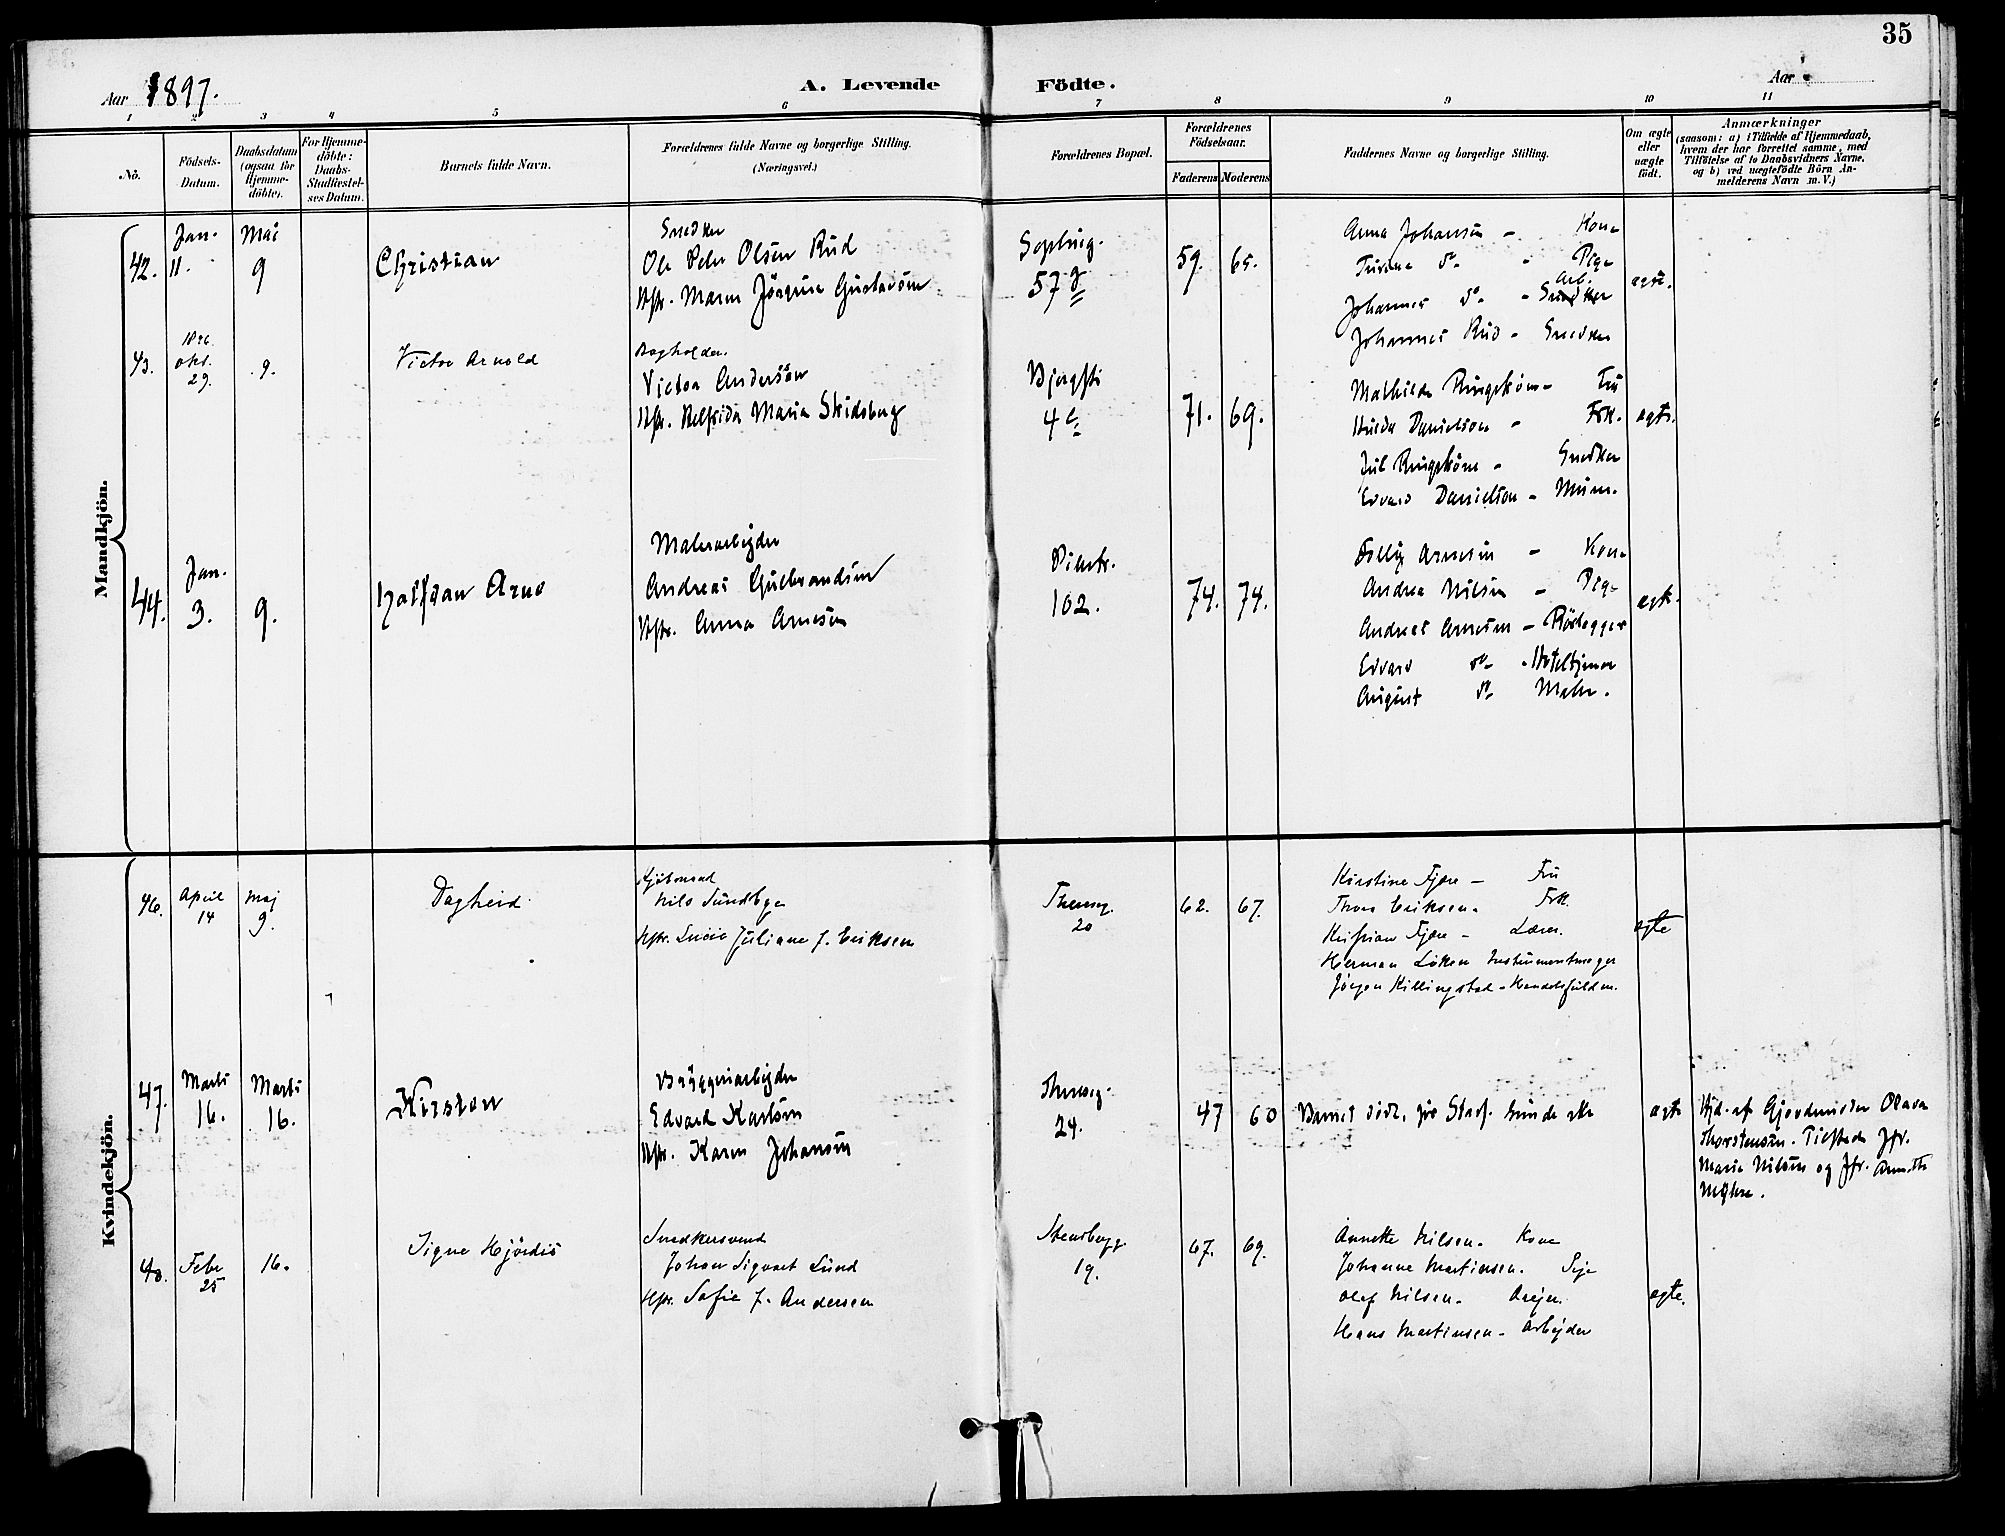 35
Aar 1897.
A. Levende Födte.
Aar
1 2 3 4 5 6 7 8 9 10 11
No.
Födsels-
Datum.
Daabsdatum
(ogsaa for
Hjemme-
döbte).
For Hjemme-
döbte:
Daabs-
Stadfæstel-
ses Datum.
Barnets fulde Navn.
Forældrenes fulde Navne og borgerlige Stilling.
(Næringsvei.)
Forældrenes Bopæl.
Forældrenes
Födselsaar.
Faderens Moderens
Faddernes Navne og borgerlige Stilling.
Om ægte
eller
uægte
födt.
Anmærkninger
(saasom: a) i Tilfælde af Hjemmedaab,
hvem der har forrettet samme, med
Tilföielse af to Daabsvidners Navne.
og b) ved uægtefödte Börn An-
melderens Navn m. V.)
Mandkjön.
42.
Jan.
11.
Mai
9
Christian
Snedker
Ole Peder Olsen Rud
Hst. Maren Jörgine Gustavsen
57
59. 65.
Anna Johansen - Kone
do - Pige
Arb.
Johannes do - Snedker
Johannes Rud - Snedker
egte.
43.
okt.
29.
9.
Victor Arnold
Bogholder.
Victor Anderson
Maria Skidsberg
4
71. 69.
Mathilde Ringström - Fru
Hulda Danielson - Frk.
Jul Ringström - Snedker
Edvard Danielson - Murer.
egte.
44.
Jan.
3.
9.
Halfdan Arne
Malerarbejder
Andreas Gulbrandsen
Hst. Anna Arnesen
102.
74. 74.
Arnesen - Kone
Andrea Nilsen - Pige
Andreas Arnesen - Rörlegger
Edvard do - Hoteltjener
August do Maler.
egte.
Kvindekjön.
46.
April
14
Maj
9.
Dagheid
Nils Sundbye
Hst. Lucie Juliane f. Eriksen
Thereseg.
20
62. 67.
Kirstine Fjære - Fru
Thora Eriksen - Frk.
Kristian Fjære - Lærer.
Herman Löken Instrumentmager
Jörgen Killingstad - Handelsfuldm.
egte
47.
Marts
16.
Marts
16.
Kirsten
Bryggeriarbejder
Edvard Karlsen
Hst. Karen Johansen
Thereseg.
24.
47 60
Barnet död,
egte
Hjd. af Gjordemoder Olava
Thorstensen. Tilstede Jfr.
Marie Nilsen og Jfr. Annette
48.
Febr
25
16.
Signe Hjördis
Snedkersvend
Johan Sigvart Lund
Hst. Sofie f. Andersen
Stensbergg.
19.
67. 69.
Annette Nilsen. Kone
Johanne Martinsen. Pige
Olaf Nilsen. Drejer.
Hans Martinsen - Arbejder
egte.